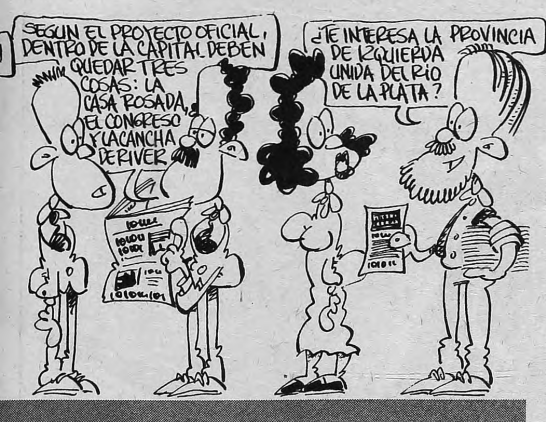 SEGUN EL PROYECTO OFICIAL,
DENTRO DE LA CAPITAL DEBEN
QUEDAR TRES
COSAS: LA
CASA ROSADA,
EL CONGRESO
Y LA CANCHA
DE RIVER
¿TE INTERESA LA PROVINCIA
DE IZQUIERDA
UNIDA DEL RIO
DE LA PLATA?